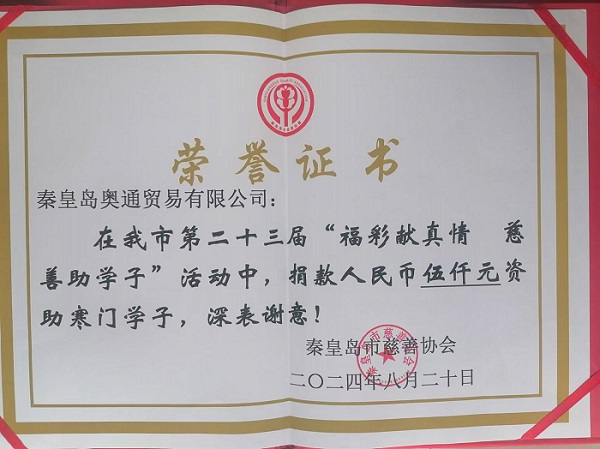 荣誉证书
秦皇岛奥通贸易有限公司：
在我市第二十三届“福彩献真情 慈
善助学子”活动中，捐款人民币伍仟元资
助寒门学子，深表谢意！
秦皇岛市慈善协会
二〇二四年八月二十日